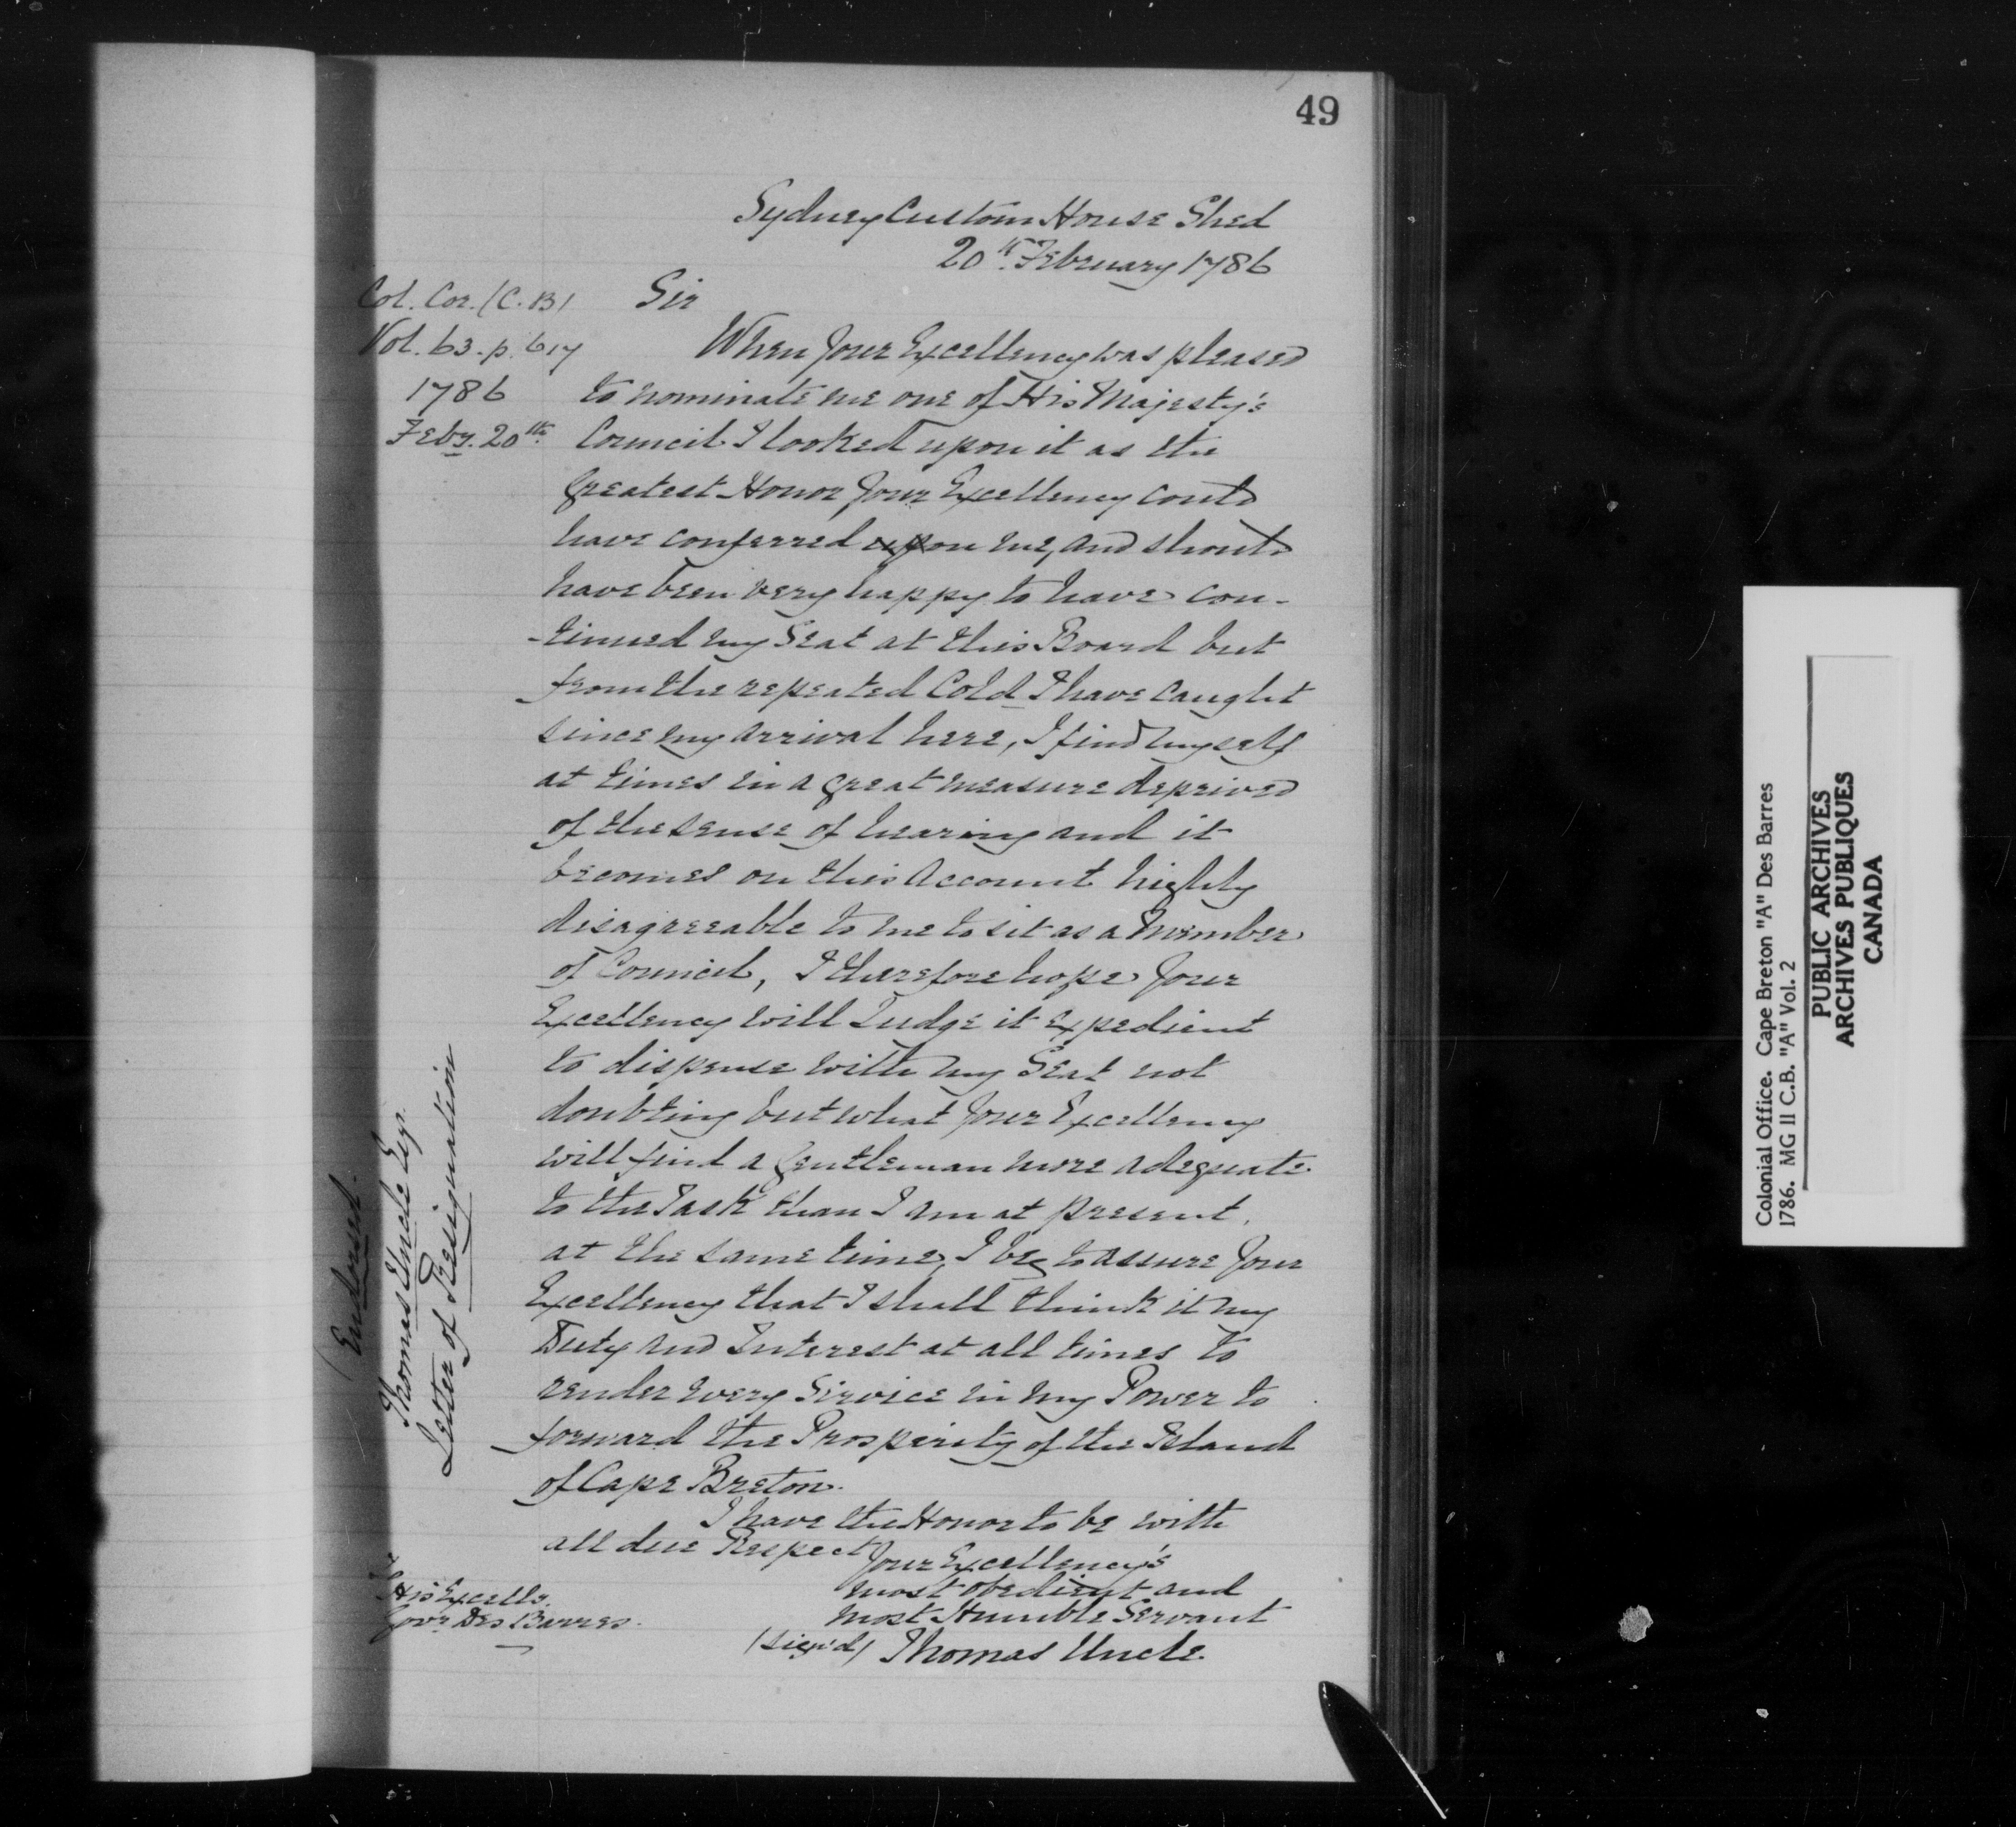 49
Sydney Custom House Shed
20th February 1786
Col. Cor. (C. B)
Vol. 63. p. 617
1786
Feby. 20th
Sir
When Your Excellency was pleased
to nominate me one of His Majesty's
Council I looked upon it as the
Greatest Honor Your Excellency could
have conferred upon me, and should
have been very happy to have con-
-tinued my Seat at this Board but
from the repeated Cold I have caught
since my arrival here, I find myself
at times in a great measure deprived
of the sense of hearing and it
becomes on this Account highly
disagreeable to me to sit as a Member
of Council, I therefore hope Your
Excellency will Judge it Expedient
to dispense with my Seat not
doubting but what Your Excellency
will find a Gentleman more adequate
to the Task than I am at present,
at the same time, I beg to assure Your
Excellency that I shall think it my
Duty and Interest at all times to
render every Service in my Power to
forward the Prosperity of the Island
of Cape Breton.
I have the Honor to be with
all due Respect
Your Excellency's
most obedient and
most Humble Servant
(sign'd) Thomas Uncle
His Excelly.
Govr. Des Barres.
(Endorsed.
Thomas Uncle Esqr.
Letter of Resignation
Colonial Office. Cape Breton "A" Des Barres
1786. MG II C.B. "A" Vol. 2
PUBLIC ARCHIVES
ARCHIVES PUBLIQUES
CANADA